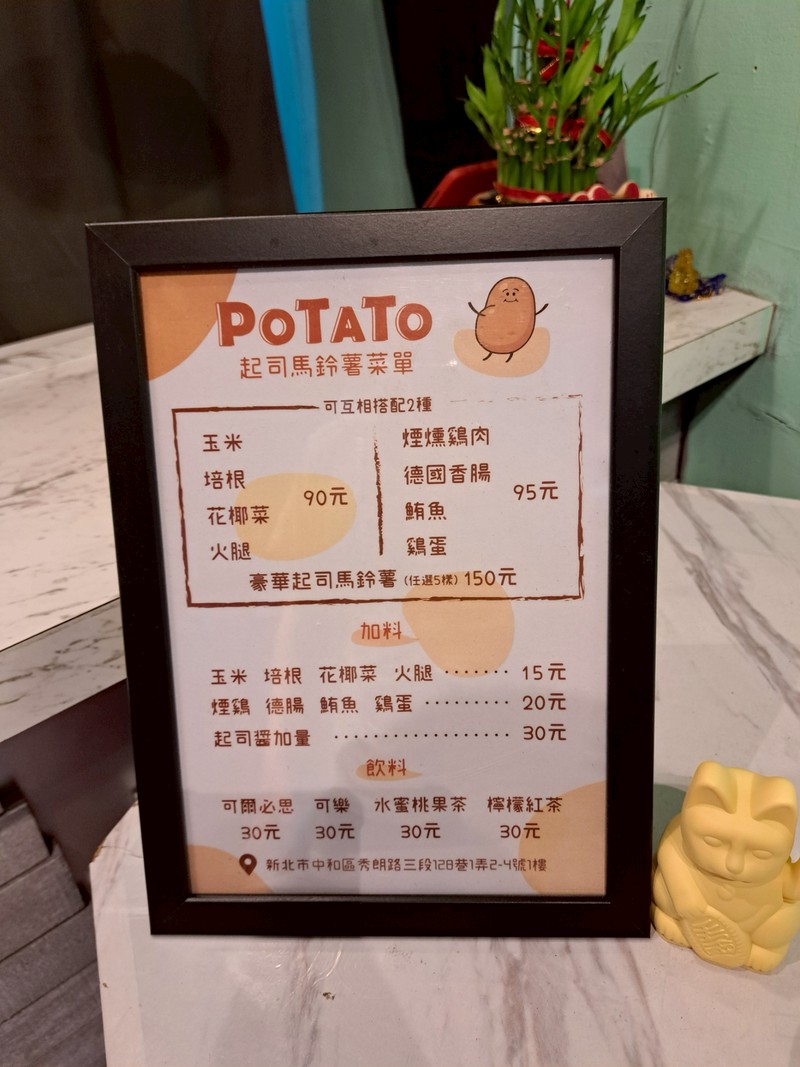 POTATO
起司馬鈴薯菜單
可互相搭配2種
玉米
培根
花椰菜
火腿
90元
煙燻鷄肉
德國香腸
鮪魚
鷄蛋
95元
豪華起司馬鈴薯 (任選5樣) 150元
加料
玉米 培根 花椰菜 火腿 ······· 15元
煙鷄 德腸 鮪魚 鷄蛋 ········· 20元
起司醬加量 ·················· 30元
飲料
可爾必思 可樂 水蜜桃果茶 檸檬紅茶
30元 30元 30元 30元
新北市中和區秀朗路三段128巷1弄2-4號1樓